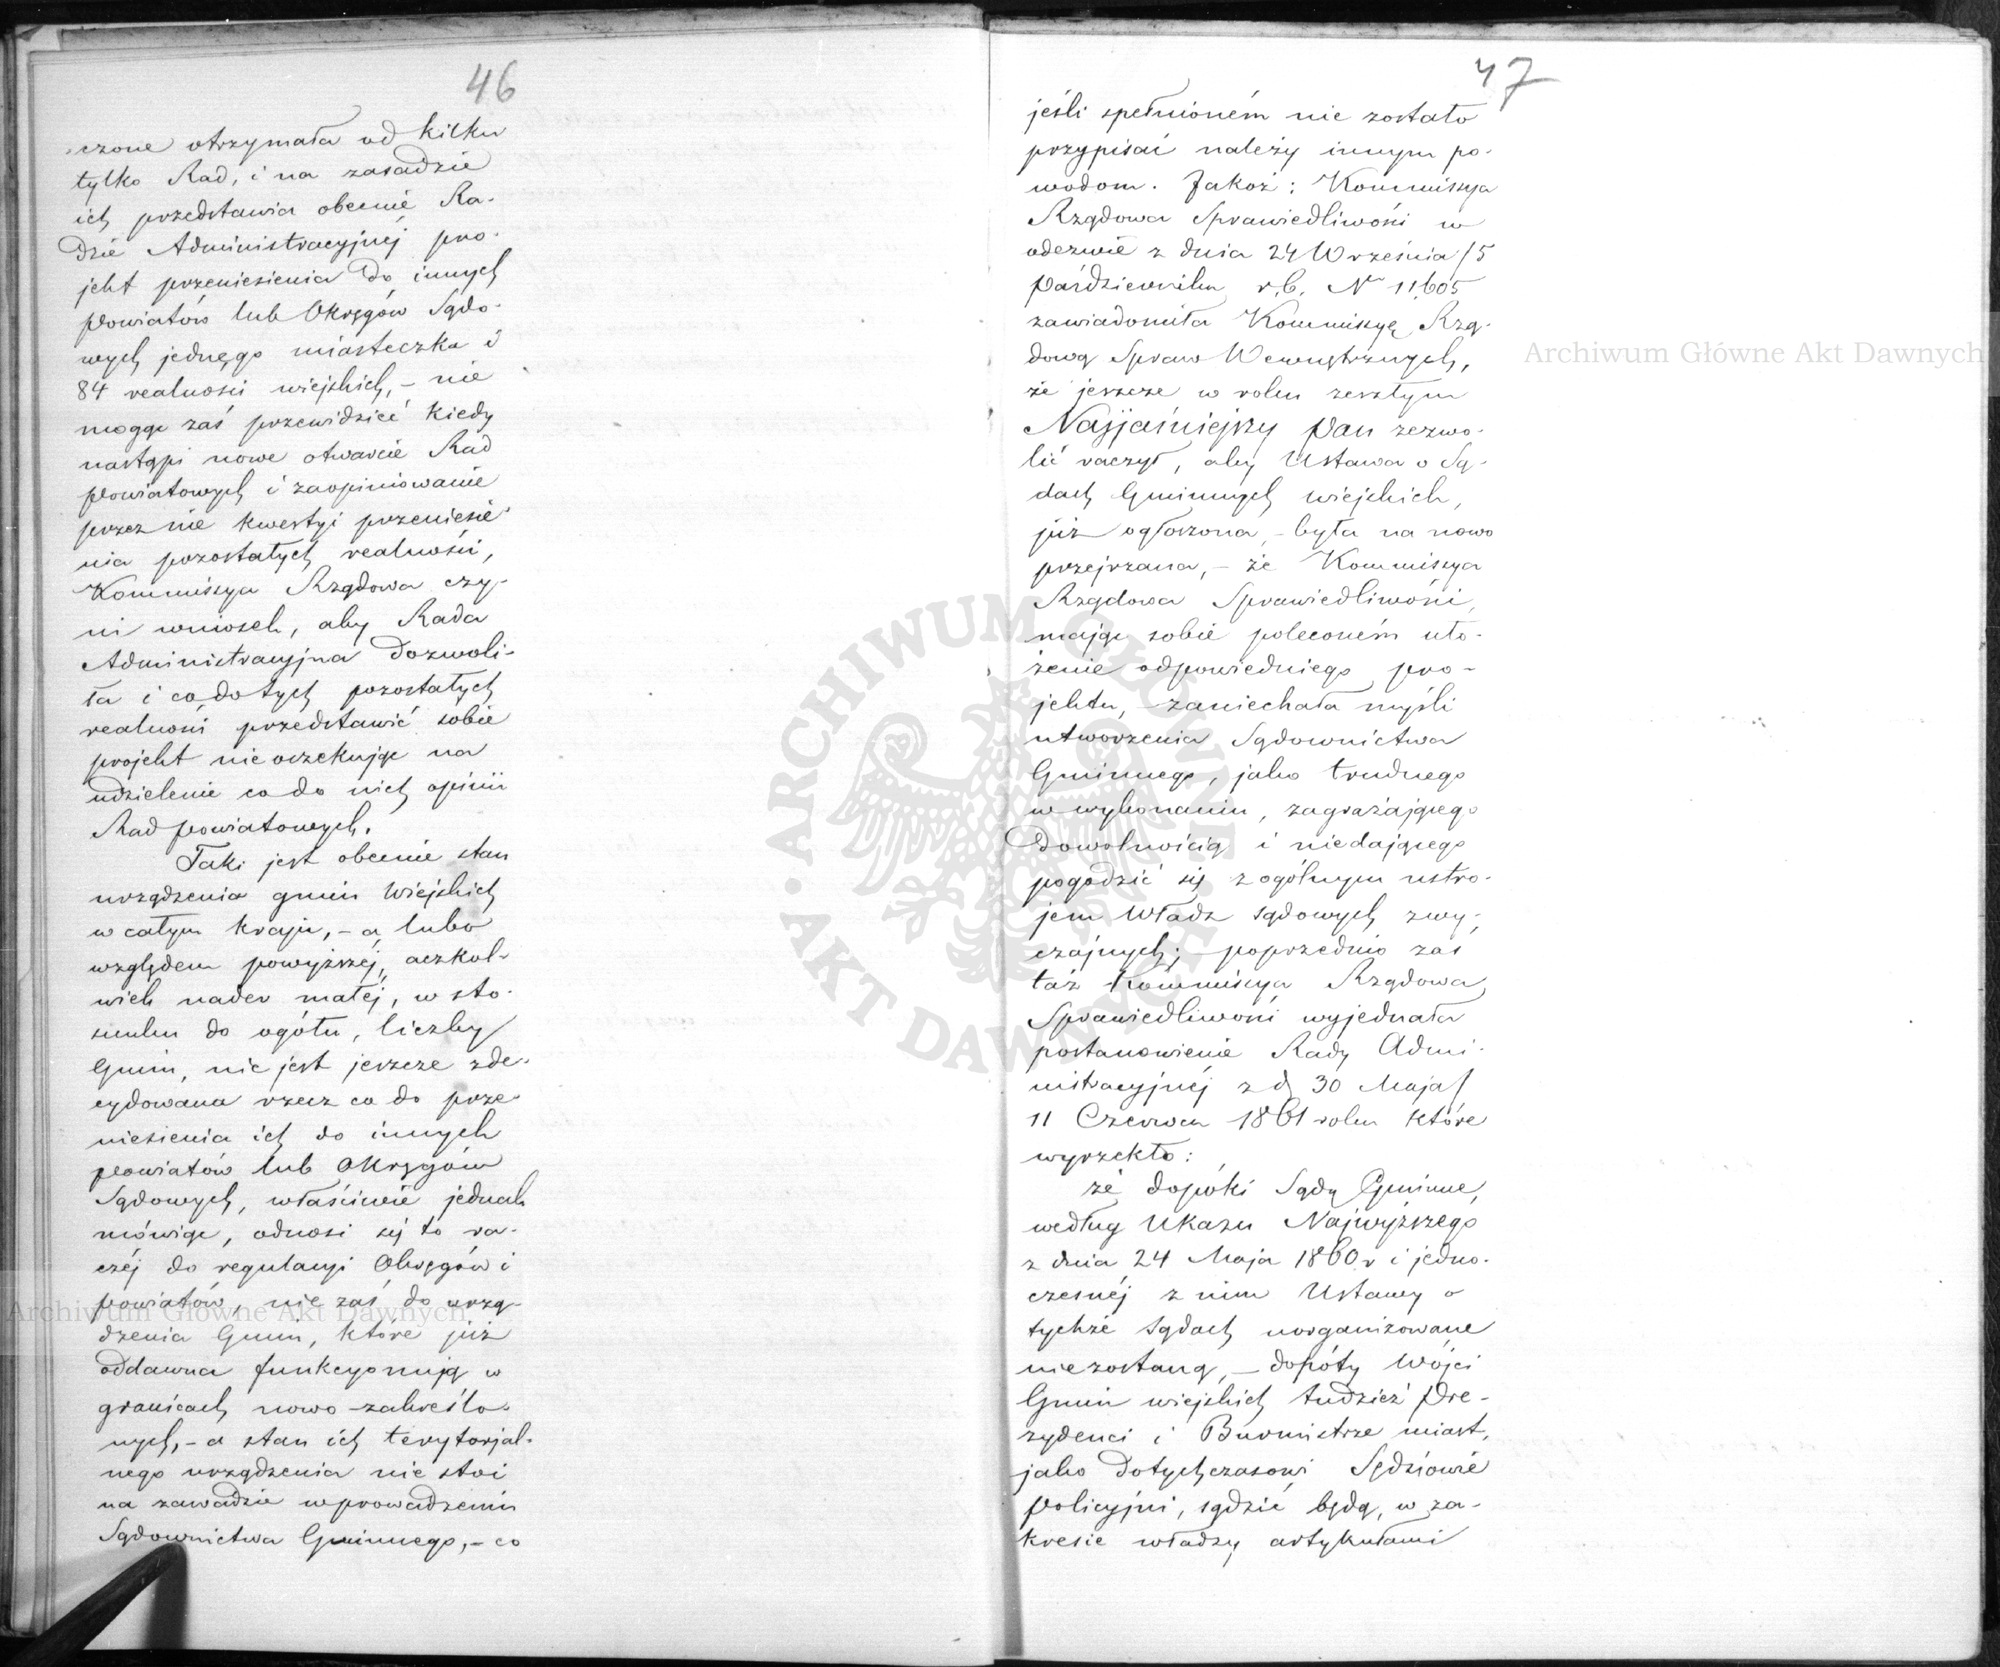 46
czone otrzymała od kilku
tylko Rad, i na zasadzie
ich przedstawia obecnie Ra-
dzie Administracyjnej pro-
jekt przeniesienia do innych
powiatów lub Okręgów Sądo-
wych jednego miasteczka i
84 realności wiejskich, – nie
mogąc zaś przewidzieć kiedy
nastąpi nowe otwarcie Rad
powiatowych i zaopiniowanie
przez nie kwestyi przeniesie-
nia pozostałych realności,
Kommissya Rządowa czy-
ni wniosek, aby Rada
Administracyjna dozwoli-
ła i co do tych pozostałych
realności przedstawić sobie
projekt nie oczekując na
udzielenie co do nich opinii
Rad powiatowych.
Taki jest obecnie stan
urządzenia gmin Wiejskich
w całym kraju, – a lubo
względem powyższej, aczkol-
wiek nader małej, w sto-
sunku do ogółu, liczby
Gmin, nie jest jeszcze zde-
cydowana rzecz co do prze-
niesienia ich do innych
powiatów lub Okręgów
Sądowych, właściwie jednak
mówiąc, odnosi się to ra-
czej do regulacyi Okręgów i
powiatów, nie zaś do urzą-
dzenia Gmin, które już
oddawna funkcyonują w
granicach nowo-zakreślo-
nych, – a stan ich terytorjal-
nego urządzenia nie stoi
na zawadzie wprowadzeniu
Sądownictwa Gminnego, – co
47
jeśli spełnioném nie zostało
przypisać należy innym po-
wodom. Jakoż: Kommissya
Rządowa Sprawiedliwości w
odezwie z dnia 24 Września/5
Października r.b. Nr 11,605
zawiadomiła Kommissyę Rzą-
dową Spraw Wewnętrznych,
że jeszcze w roku zeszłym
Najjaśniejszy Pan zezwo-
lić raczył, aby Ustawa o Są-
dach Gminnych wiejskich,
już ogłoszona, – była na nowo
przejrzana, – że Kommissya
Rządowa Sprawiedliwości,
mając sobie poleconém uło-
żenie odpowiedniego pro-
jektu, – zaniechała myśli
utworzenia Sądownictwa
Gminnego, jako trudnego
w wykonaniu, zagrażającego
dowolnością i niedającego
pogodzić się z ogólnym ustro-
jem Władz sądowych zwy-
czajnych; – poprzednio zaś
taż Kommissya Rządowa
Sprawiedliwości wyjednała
postanowienie Rady Admi-
nistracyjnej z d. 30 Maja/
11 Czerwca 1861 roku które
wyrzekło:
że dopóki Sądy Gminne,
według Ukazu Najwyższego
z dnia 24 Maja 1860 r i jedno-
czesnej z nim Ustawy o
tychże Sądach uorganizowane
nie zostaną, – dopóty Wójci
Gmin wiejskich tudzież Pre-
zydenci i Burmistrze miast,
jako dotychczasowi Sędziowie
policyjni, sądzić będą, w za-
kresie władzy artykułami
Archiwum Główne Akt Dawnych
Archiwum Główne Akt Dawnych
ARCHIWUM GŁÓWNE AKT DAWNYCH